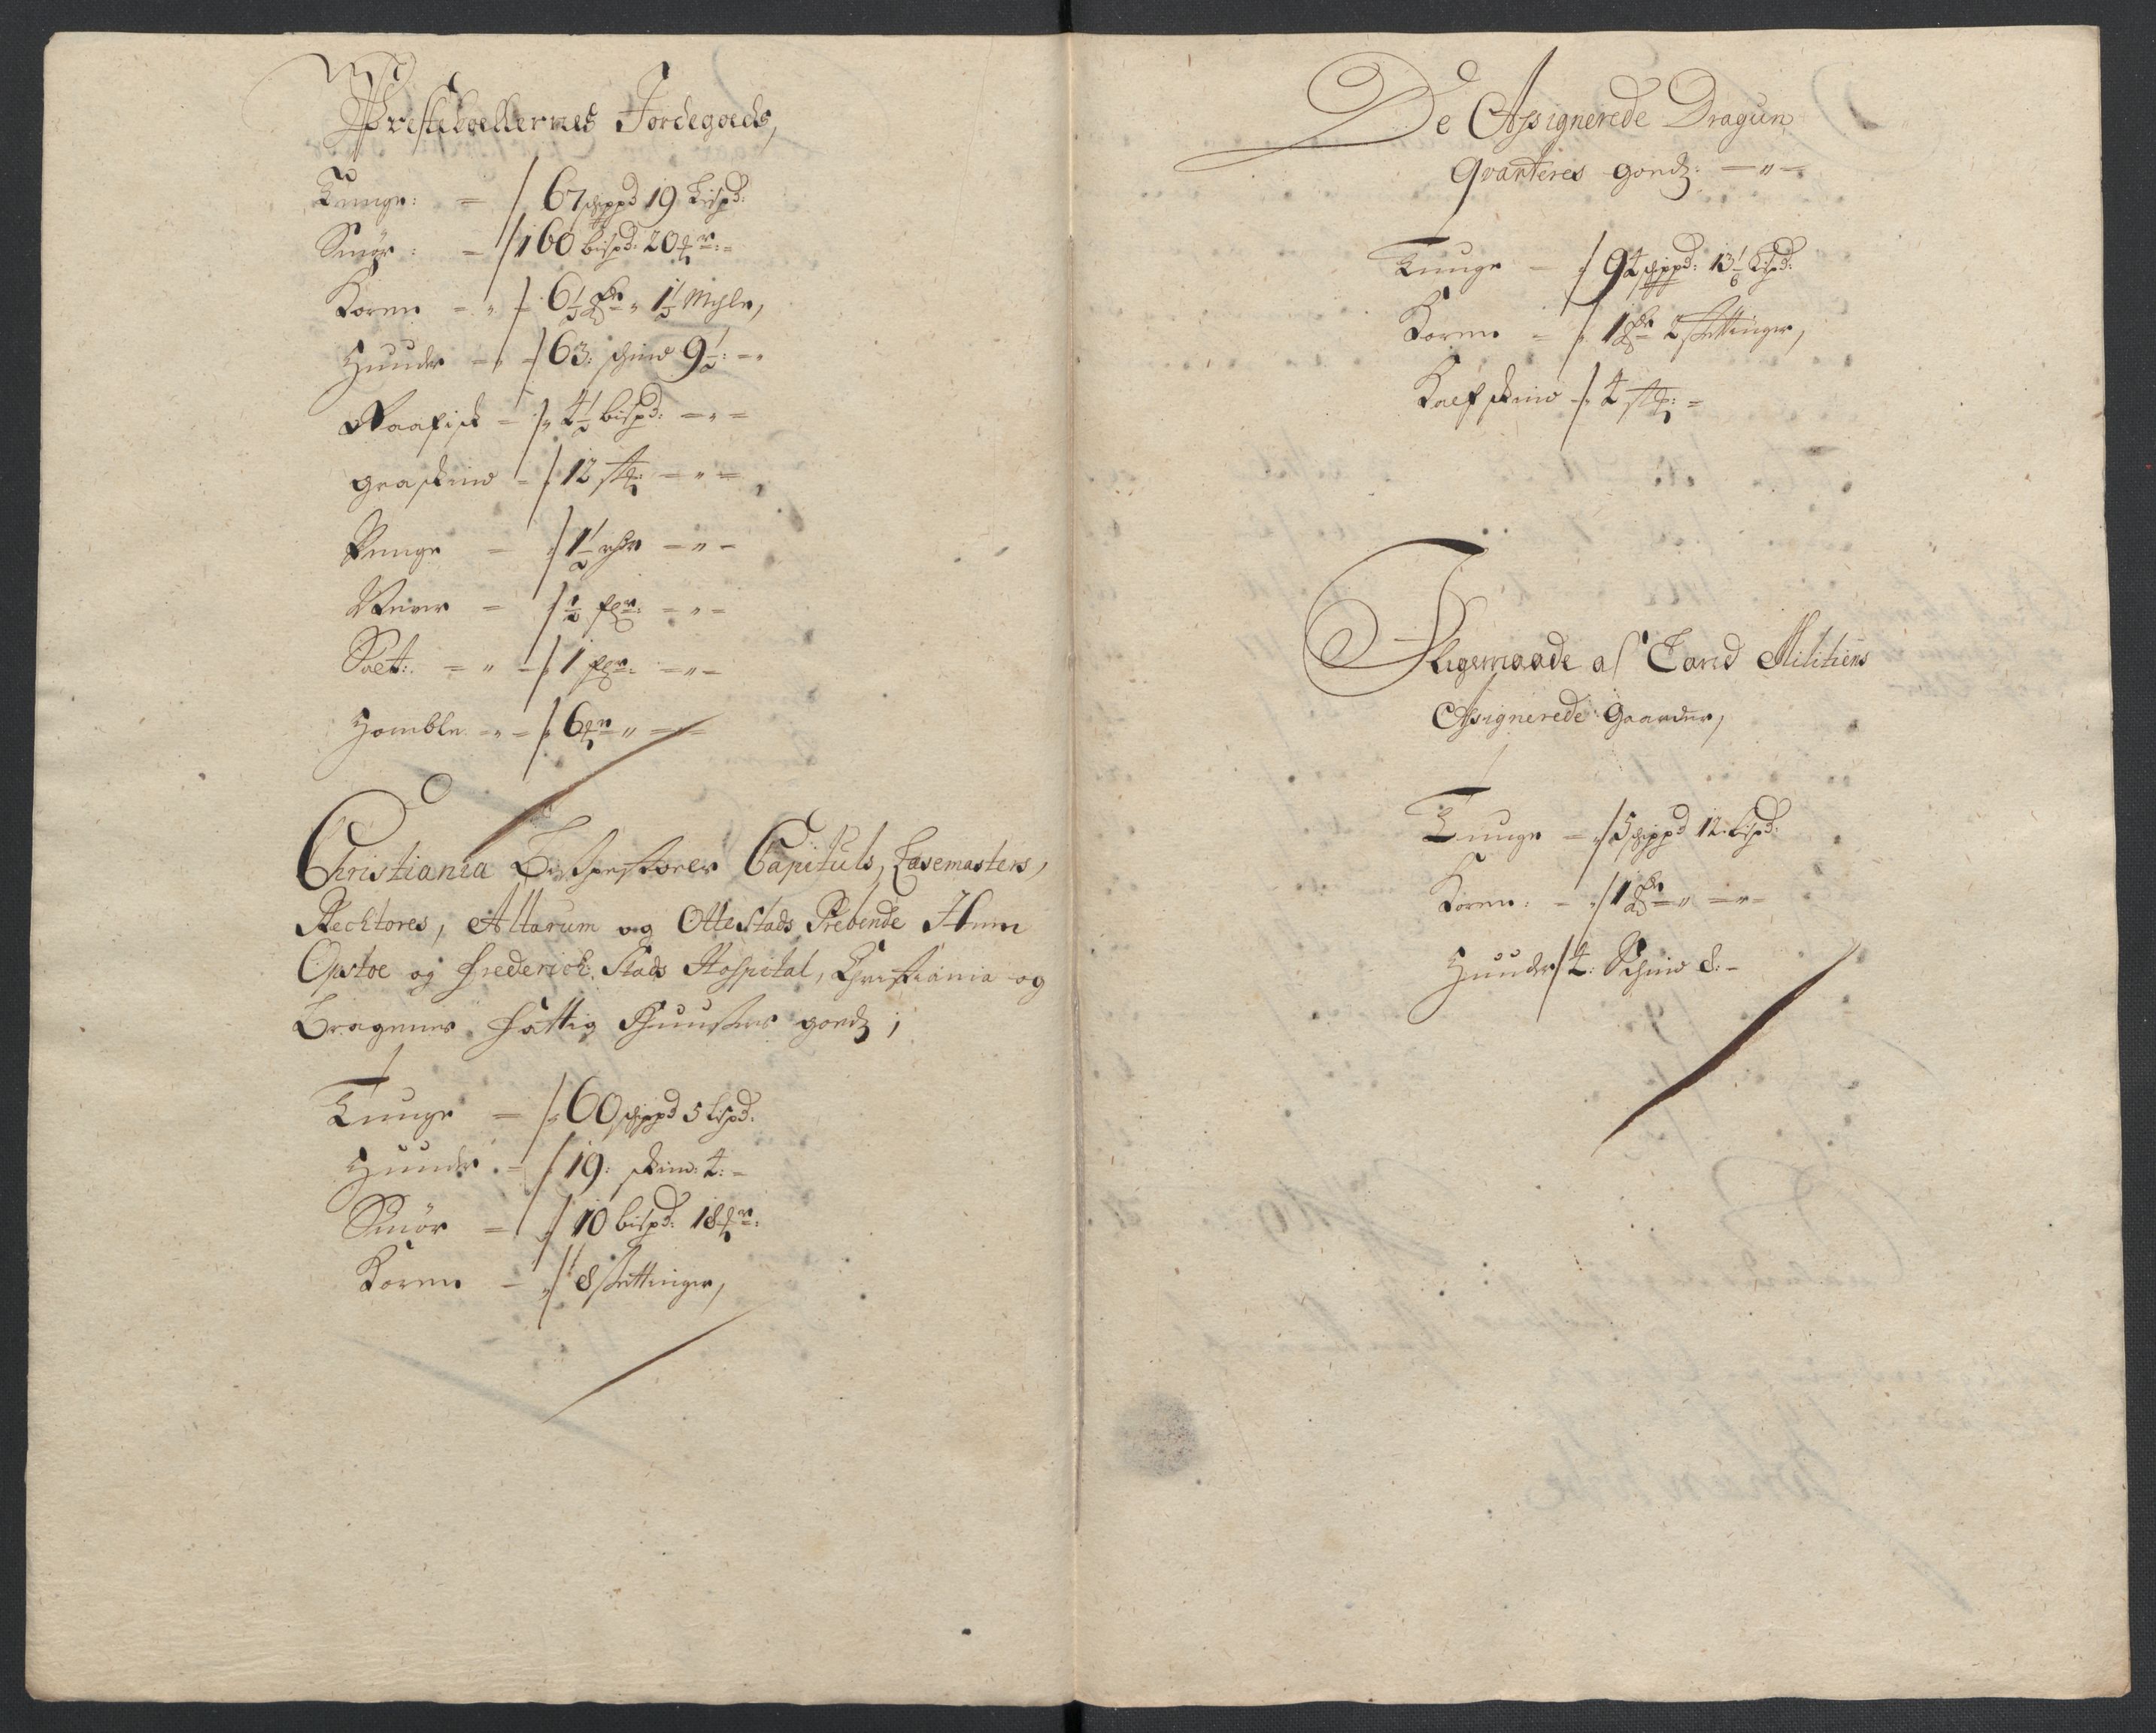 Prestebollernes Jordegoeds,
Tunge: = / 67 schippd 19 Lispd:
Smør: = / 160 bispd: 20 mr: =
Korn = " / 6 1/3 Tdr " 1 1/3 Mæhle,
Huuder = " / 63: schind 9 1/2: = "
Raafisk = / 4 1/2 bispd: = " =
graaskind = / 12 stk: = " =
Penge = / 1 1/2 rdr = " =
/ 1/2 = " =
Salt: = " = / 1 = " =
Homble = " = / 6 mr " =
Christiania Bispestoels Capituls, Lavemasters,
Rechtores, Altarum og Ottestads Prebende Item
Opsloe og Friderich Stads Hospital, Christiania og
Bragernes Fattig Huusers goeds ;
Tunge = / 60 schippd 5 Lispd:
Huuder = / 19: skind: 4: =
Smör = / 10 bispd: 18 mr:
Korn = / 8 settinger,
De Assignerede Dragun
Qvarteres goeds: = " =
Tunge = / 94 schippd: 13 1/6 Lispd:
Korn = / 1 Tdr 2 settinger,
Kalfskind / 4 stk: =
Iligemaade af Land Militiens
Assignerede Gaarder,
Tunge = / 5 schippd 12 Lispd:
Korn: = / 1 Tdr " = " =
Huuder / 4: Schind 8: =